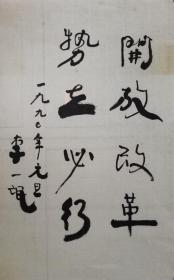 開放改革
势在必行
一九九〇年元旦
李一氓